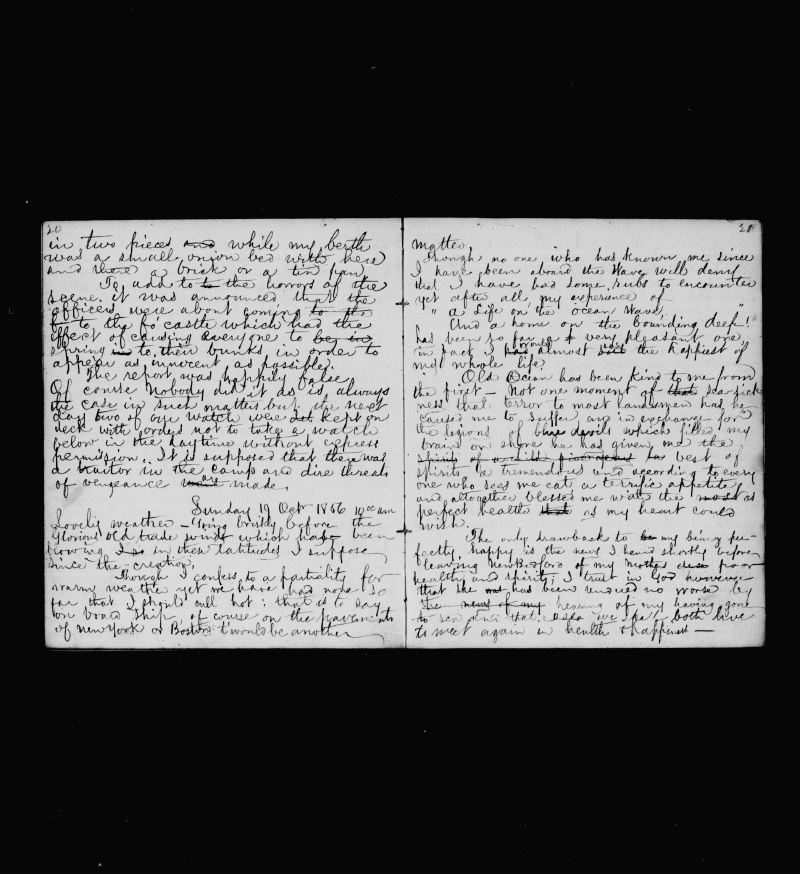 20
in two pieces and while my berth
was a small onion bed with here
and there a brick or a tin pan
To add to the horrors of the
scene it was announced that the
officers were about coming to the
to the fo'castle which had the
effect of causing every one to be in
spring to their bunks in order to
appear as innocent as possible.
The report was happily false
Of course nobody did it as is always
the case in such matters but the next
day two of our watch were kept on
deck with orders not to take a watch
below in the daytime without express
permission. It is supposed that there was
a traitor in the camp and dire threats
of vengeance were made
Sunday 19 Oct 1856 10 am
Lovely weather - Going briskly before the
glorious old trade winds which have been
blowing so in these latitudes I suppose
since the creation.
Though I confess to a partiality for
warm weather yet we have had none so
far that I should call hot: that is to say
on board ship, of course on the pavements
of New York or Boston t'would be another
21
matter.
Though no one, who has known me since
I have been aboard the Wave will deny
that I have had some rubs to encounter
yet after all, my experience of
"a Life on the Ocean Wave,
And a home on the bounding deep"!
has been so far a very pleasant one
in fact I almost the happiest of
my whole life.
Old Ocean has been kind to me from
the first - Not one moment of that sea sick
ness that terror to most landsmen has he
caused me to suffer, and in exchange for
the legions of blue devils which filled my
brain on shore he has given me the
spirits of a child best of
spirits a tremendous and according to every
one who sees me eat a terrific appetite
and altogether blessed me with the most as
perfect health that as my heart could
wish.
The only drawback to my being per-
fectly happy is the news I heard shortly before
leaving New Bedford of my Mothers poor
health and spirits; I trust in God however
that she was has been rendered no worse by
the news of my hearing of my having gone
to sea and that we may both live
to meet again in health & happiness -